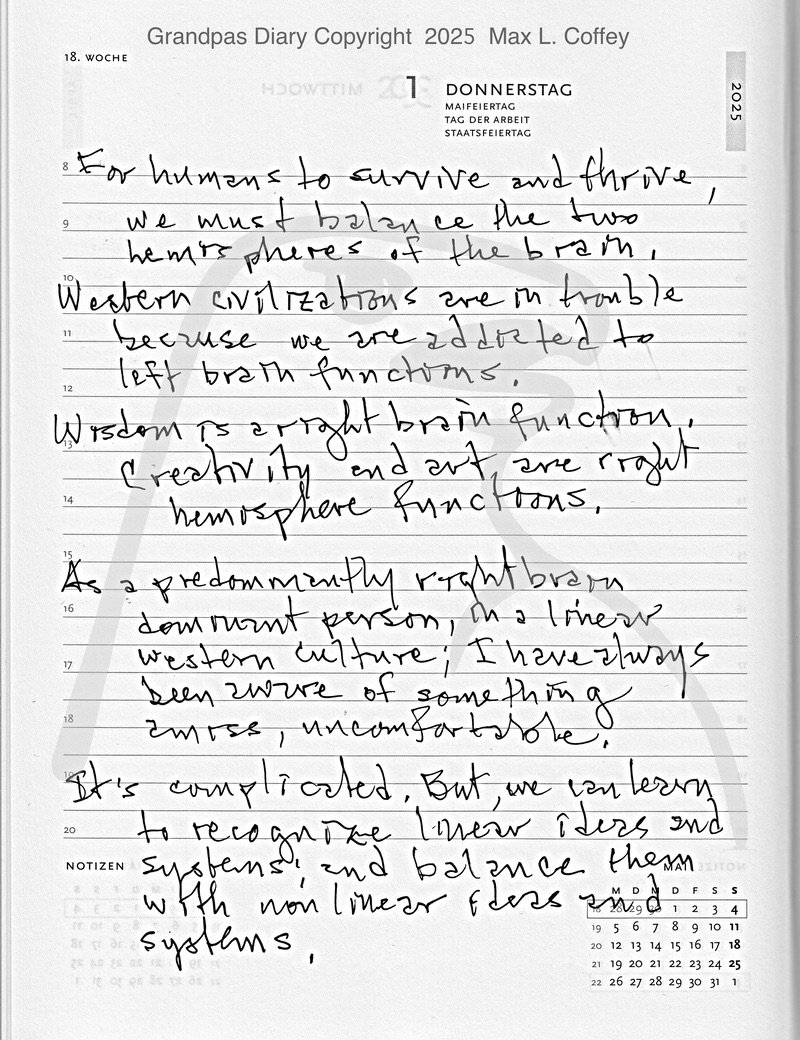 Grandpas Diary Copyright 2025 Max L. Coffey
18. WOCHE
1 DONNERSTAG
MAIFEIERTAG
TAG DER ARBEIT
STAATSFEIERTAG
2025
8 For humans to survive and thrive,
9 we must balance the two
hemispheres of the brain.
10
Western civilizations are in trouble
11 because we are addicted to
left brain functions.
12
Wisdom is a right brain function.
13
Creativity and art, are right
14 hemisphere functions.
15
As a predominantly right brain
16 dominant person, in a linear
17 western culture; I have always
been aware of something
18 amiss, uncomfortable.
19 It's complicated. But, we can learn
20 to recognize linear ideas and
NOTIZEN systems; and balance them
MAI
with nonlinear ideas and
systems.
M D M D F S S
18 28 29 30 1 2 3 4
19 5 6 7 8 9 10 11
20 12 13 14 15 16 17 18
21 19 20 21 22 23 24 25
22 26 27 28 29 30 31 1